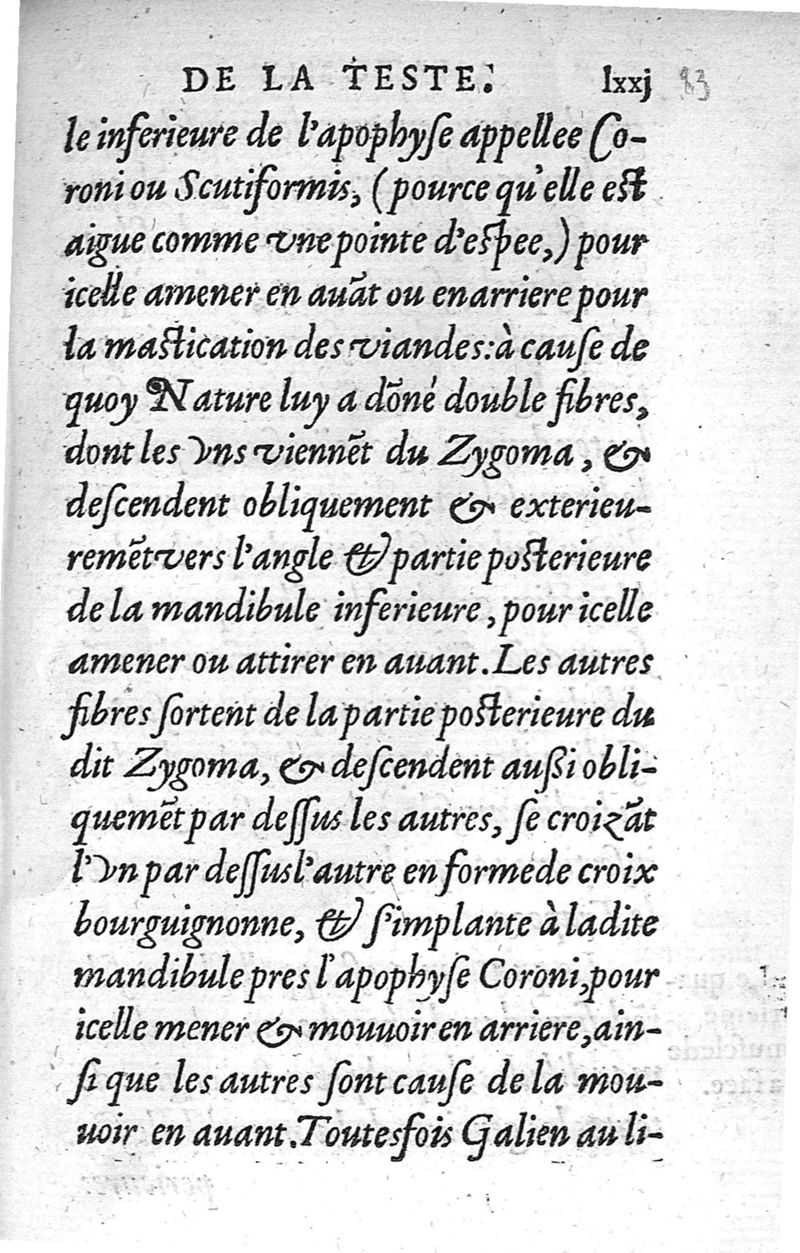 DE LA TESTE. lxxj 83
le inferieure de l'apophyſe appellee Co-
roni ou Scutiformis, (pource qu'elle est
aigue comme vne pointe d'espee,) pour
icelle amener en auāt ou en arriere pour
la mastication des viandes: à cauſe de
quoy Nature luy a dōné double fibres,
dont les vns viennēt du Zygoma, &
deſcendent obliquement & exterieu-
remēt vers l'angle & partie posterieure
de la mandibule inferieure, pour icelle
amener ou attirer en auant. Les autres
fibres ſortent de la partie posterieure du
dit Zygoma, & deſcendent außi obli-
quemēt par deſſus les autres, ſe croizāt
l'vn par deſſus l'autre en forme de croix
bourguignonne, & ſ'implante à ladite
mandibule pres l'apophyſe Coroni, pour
icelle mener & mouuoir en arriere, ain-
ſi que les autres ſont cauſe de la mou-
uoir en auant. Toutesfois Galien au li-